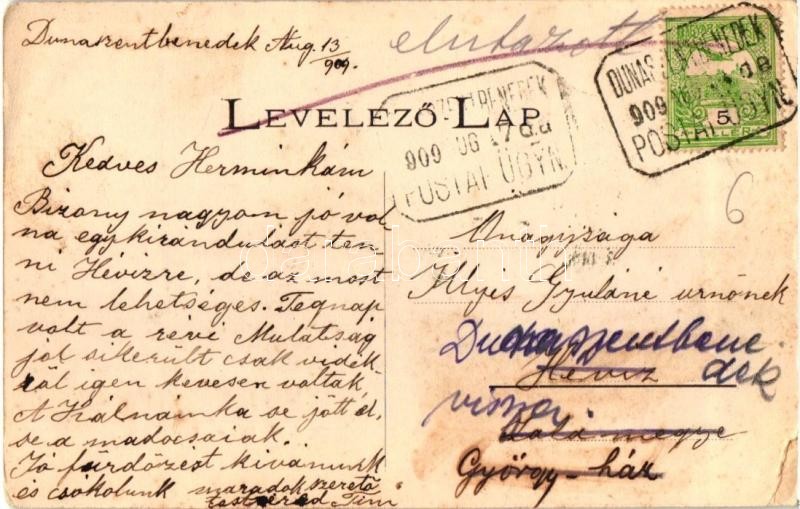 Dunaszentbenedek Aug. 13
909.
elutazott
LEVELEZŐ-LAP
DUNASZENTBENEDEK
909
POSTAI ÜGYN
909 UG 17
POSTAI ÜGYN
5
6
Kedves Herminkám
Bizony nagyon jó vol
na egykirándulást ten-
ni Hévizre, de az most
nem lehetséges. Tegnap
volt a révi Mulatság
jól sikerült csak vidék
ről igen kevesen voltak
A Kálnámka se jött el,
se a madocsaiak.
Jó fürdőzést kivánunk
és csókolunk maradok szerető
testvéred Tini
Őnagysága
Illyés Gyuláné urnőnek
Dunaszentbene
dek
Héviz
vissza
Zala megye
György-ház
darabanth.com